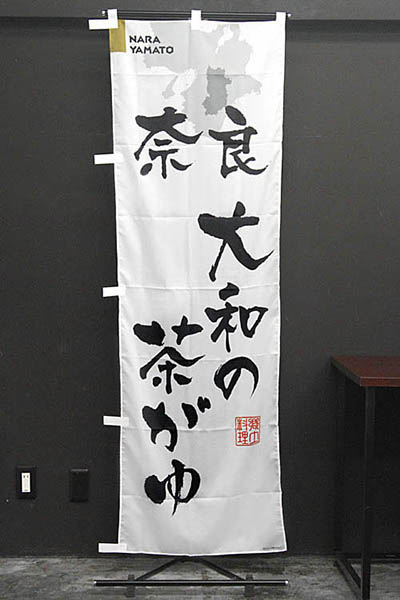 NARA
YAMATO
奈良
大和の
茶がゆ
郷土
料理